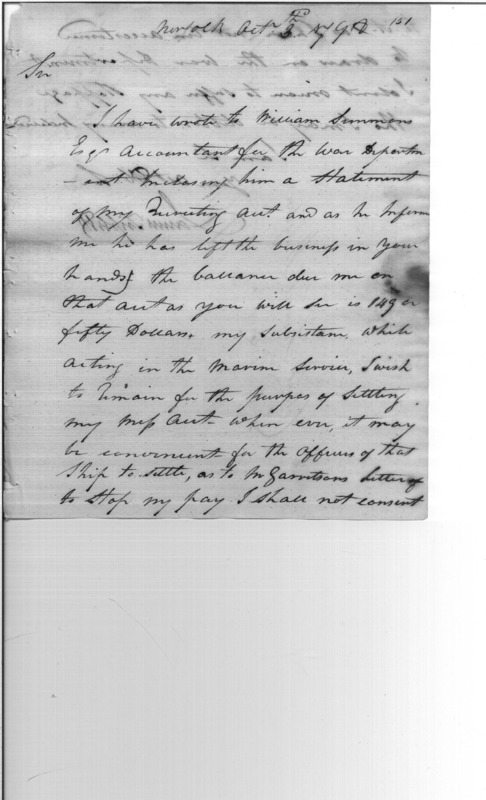 Norfolk Octr 3d 1798 151
Sir
I have wrote to William Simmons
Esqr Accountant for the War Departm
- ent Inclosing him a Statement
of my Recruiting Act. and as he Inform
me he has left the business in your
hands the ballance due me on
that Act as you will See is 149 or
fifty Dollars. my Subsistance, while
acting in the Marine Service, I wish
to Remain for the purpos of Settling
my mess Act- when ever, it may
be convenient for the Officers of that
Ship to Settle, as to Mr Garretsons Letter of
to Stop my pay I Shall not consent